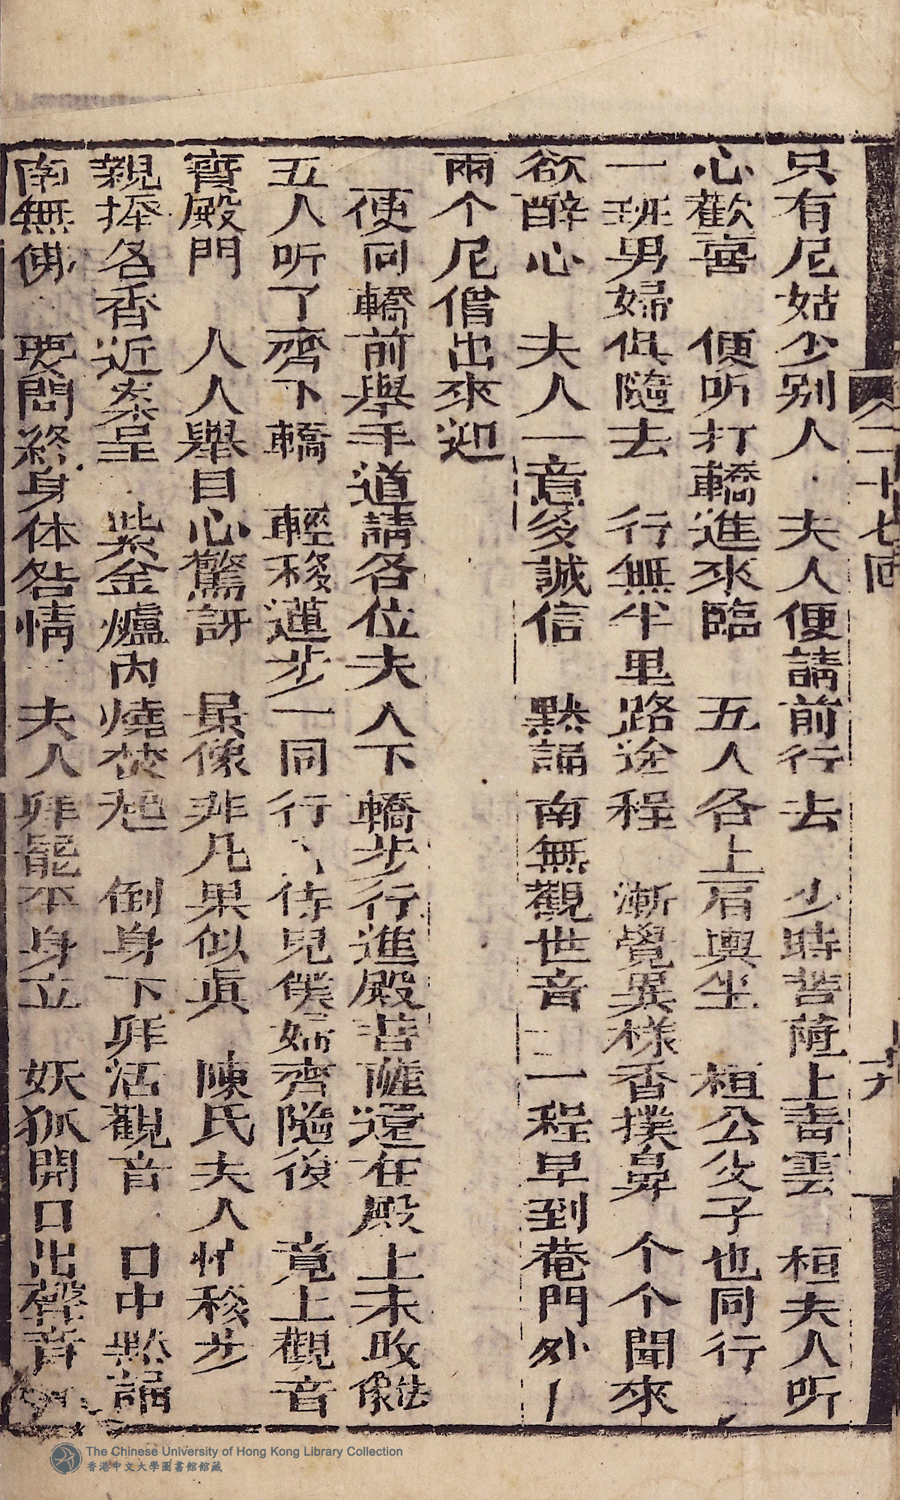 二十七回
十九
只有尼姑少别人 夫人便請前行去 少時菩薩上青雲 桓夫人听
心歡喜 便听打轎進來臨 五人各上肩輿坐 桓公父子也同行
一班男婦俱隨去 行無半里路途程 漸覺異樣香撲鼻 个个聞來
欲醉心 夫人一意多誠信 默誦南無觀世音 一程早到菴門外
兩个尼僧出來迎
便向轎前舉手道請各位夫人下轎步行進殿菩薩還在殿上未收
五人听了齊下轎 輕移蓮步一同行 侍兒僕婦齊隨後 竟上觀音
寳殿門 人人舉目心驚訝 景像非凡果似眞 陳氏夫人忙移步
親捧名香近案呈 紫金爐内燒焚起 倒身下拜活觀音 口中默誦
南無佛 要問終身体咎情 夫人拜罷平身立 妖狐開口出聲音
The Chinese University of Hong Kong Library Collection
香港中文大學圖書館館藏